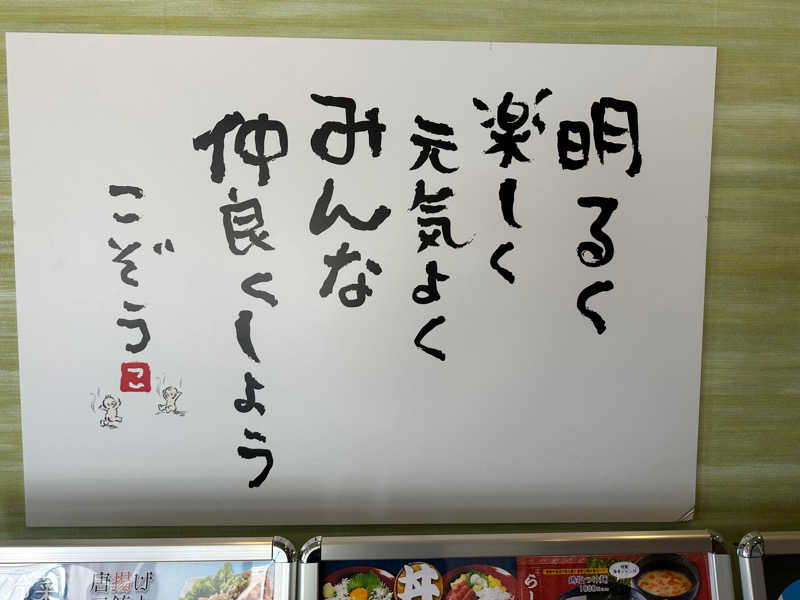 明るく
楽しく
元気よく
みんな
仲良くしよう
こぞう
こ
唐揚げ
丼
らー